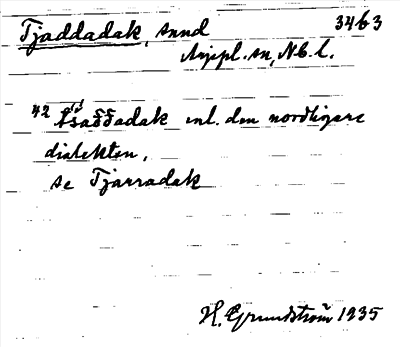 Tjaddadak, sund 3463
Arjepl. sn, Nb. l.
42 t́s̀aδ̄δ̄adak enl. den nordligare
dialekten,
se Tjarradak
H. Grundström 1935